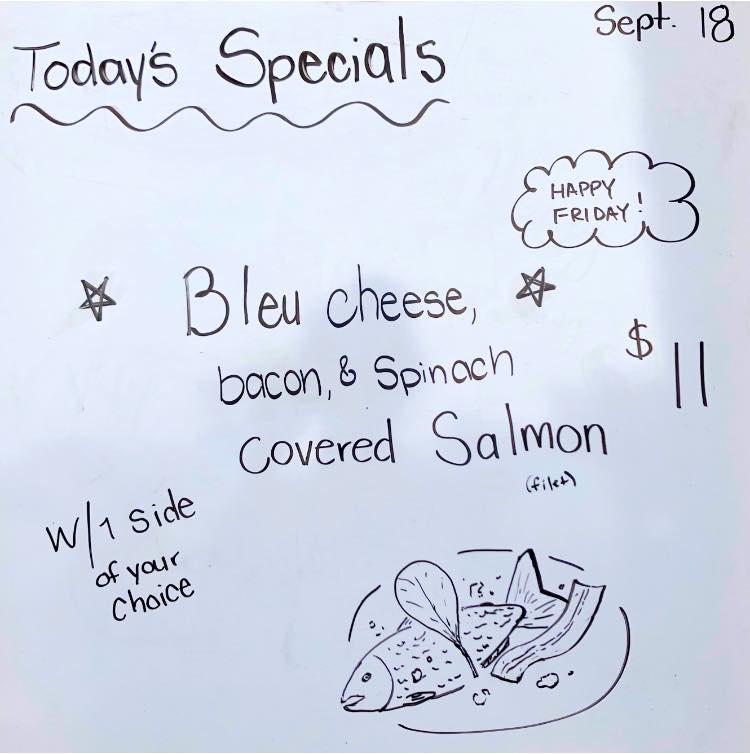 Sept. 18
Today's Specials
HAPPY
FRIDAY!
Bleu cheese,
bacon, & Spinach
covered Salmon
(filet)
$11
W/1 side
of your
choice